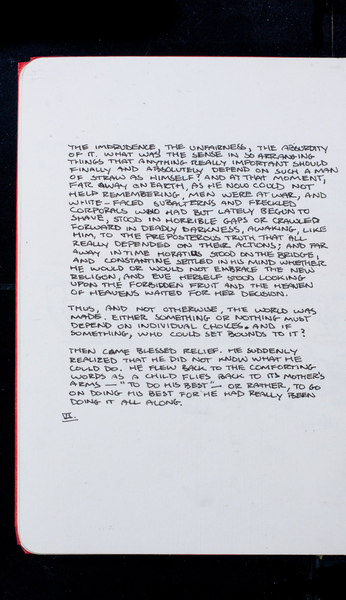 THE IMPRUDENCE, THE UNFAIRNESS, THE ABSURDITY
OF IT. WHAT WAS THE SENSE IN SO ARRANGING
THINGS THAT ANYTHING REALLY IMPORTANT SHOULD
FINALLY AND ABSOLUTELY DEPEND ON SUCH A MAN
OF STRAW AS HIMSELF? AND AT THAT MOMENT,
FAR AWAY ON EARTH, AS HE NOW COULD NOT
HELP REMEMBERING, MEN WERE AT WAR, AND
WHITE-FACED SUBALTERNS AND FRECKLED
CORPORALS WHO HAD BUT LATELY BEGUN TO
SHAVE, STOOD IN HORRIBLE GAPS OR CRAWLED
FORWARD IN DEADLY DARKNESS, AWAKING, LIKE
HIM, TO THE PREPOSTEROUS TRUTH THAT ALL
REALLY DEPENDED ON THEIR ACTIONS; AND FAR
AWAY IN TIME HORATIUS STOOD ON THE BRIDGE,
AND CONSTANTINE SETTLED IN HIS MIND WHETHER
HE WOULD OR WOULD NOT EMBRACE THE NEW
RELIGION, AND EVE HERSELF STOOD LOOKING
UPON THE FORBIDDEN FRUIT AND THE HEAVEN
OF HEAVENS WAITED FOR HER DECISION.
THUS, AND NOT OTHERWISE, THE WORLD WAS
MADE. EITHER SOMETHING OR NOTHING MUST
DEPEND ON INDIVIDUAL CHOICES. AND IF
SOMETHING, WHO COULD SET BOUNDS TO IT?
THEN CAME BLESSED RELIEF. HE SUDENLY
REALIZED THAT HE DID NOT KNOW WHAT HE
COULD DO. HE FLEW BACK TO THE COMFORTING
WORDS AS A CHILD FLIES BACK TO ITS MOTHER'S
ARMS — "TO DO HIS BEST" — OR RATHER, TO GO
ON DOING HIS BEST FOR HE HAD REALLY BEEN
DOING IT ALL ALONG.